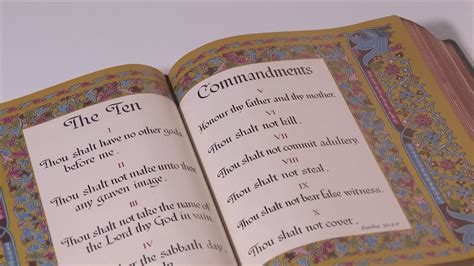 The Ten
I
Thou shalt have no other gods
before me.
II
Thou shalt not make unto thee
any graven image.
III
Thou shalt not take the name of
the Lord thy God in vain.
IV
the sabbath day,
Commandments
V
Honour thy father and thy mother.
VI
Thou shalt not kill.
VII
Thou shalt not commit adultery.
VIII
Thou shalt not steal.
IX
Thou shalt not bear false witness.
X
Thou shalt not covet.
Exodus 20:3-17